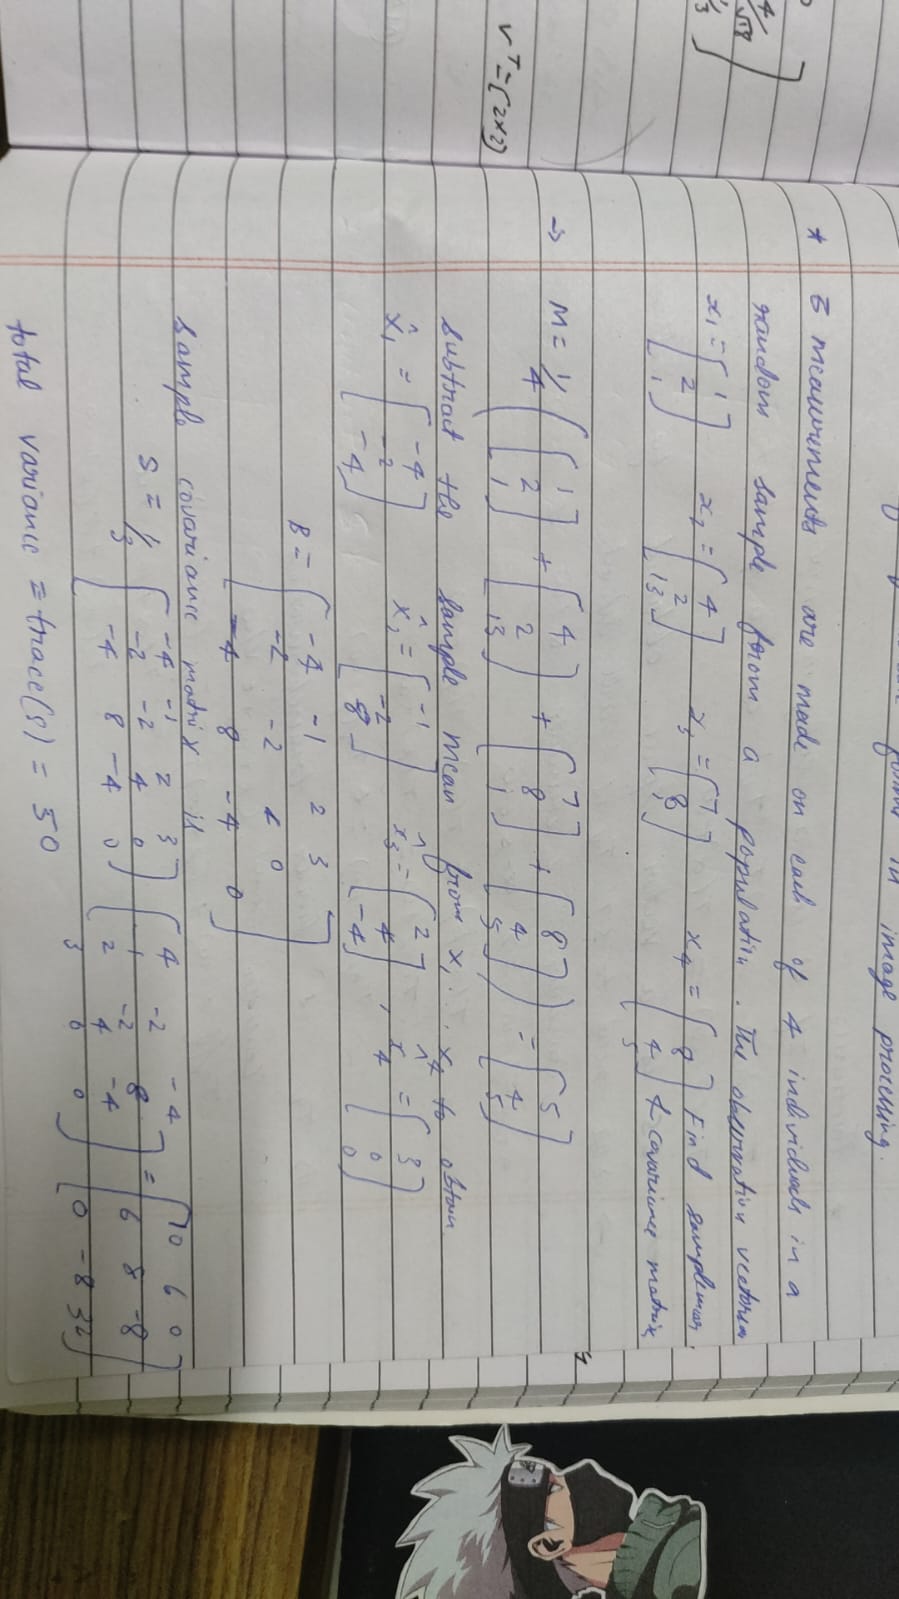 4/√18
1/3
Vᵀ = [2×2)
form in image processing.
* 3 measurements are made on each of 4 individuals in a
random sample from a population. The observation vectors
x₁ = [1 2 1] x₂ = [4 2 13] x₃ = [7 8 1] x₄ = [8 4 5] Find sample mean,
& covariance matrix
→ M = 1/4 ([1 2 1] + [4 2 13] + [7 8 1] + [8 4 5]) = [5 4 5]
Subtract the sample mean from x₁ ... x₄ to obtain
x̂₁ = [-4 -2 -4] x̂₂ = [-1 -2 8] x̂₃ = [2 4 -4], x̂₄ = [3 0 0]
B = [-4 -1 2 3
-2 -2 4 0
-4 8 -4 0]
Sample covariance matrix is
S = 1/3 [-4 -1 2 3 -2 -2 4 0 -4 8 -4 0] [4 -2 -4 1 -2 8 2 4 -4 3 0 0] = [10 6 0 6 8 -8 0 -8 32]
total variance = trace(s) = 50